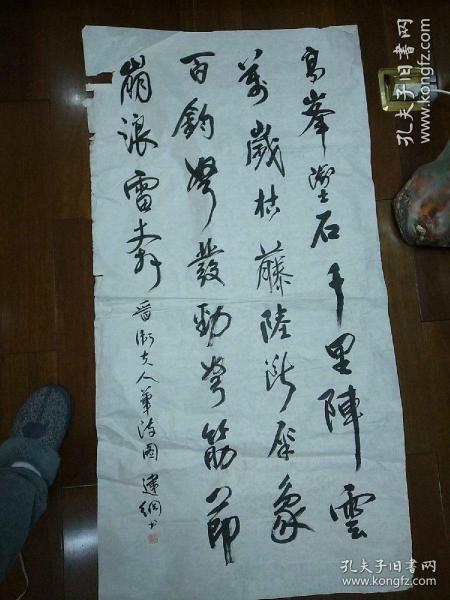 高峯墜石千里陣雲
萬歲枯藤陸斷犀象
百鈞弩發勁弩筋節
崩浪雷奔
晉衛夫人筆陣圖 建綱书
孔夫子旧书网
www.kongfz.com
孔夫子旧书网
www.kongfz.com